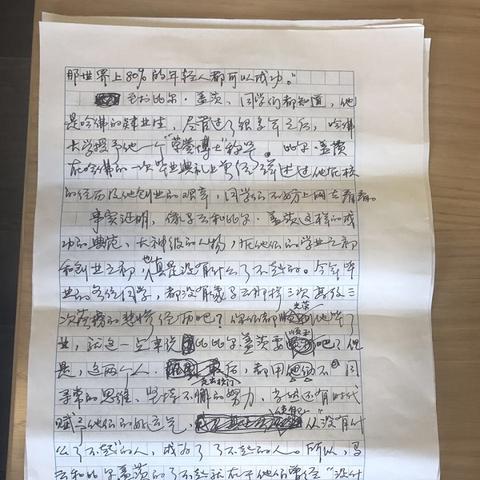 那世界上80%的年轻人都可以成功。”
比尔·盖茨,同学们都知道,他
是哈佛的肄业生,尽管过了很多年之后,哈佛
大学授予他一个“荣誉博士”称号。比尔·盖茨
在哈佛的一次毕业典礼上曾经讲述过他在校
的经历及他创业的艰辛,同学们不妨上网去看看。
事实证明,像马云和比尔·盖茨这样的成
功的典范,大神级的人物,在他们的学业之初
和创业之初,也真是没有什么了不起的。今年毕
业的各位同学,都没有像马云那样三次高考三
次落榜的悲惨经历吧?你们都顺利地毕了
业,就这一点来说比比尔盖茨要吧?但
是,这两个人,最后,都用他们不同
寻常的思维、坚持不懈的努力,当然还有时代
赋予他们的好运气,从没有什
么了不起的人,成为了了不起的人。所以,马
云和比尔盖茨的了不起就在于他们曾经“没什